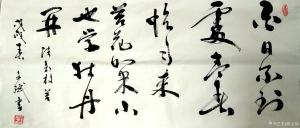 白日不到
處青春
恰自來
苔花如米小
也学牡丹
開 清袁枚苔
戊戌 書